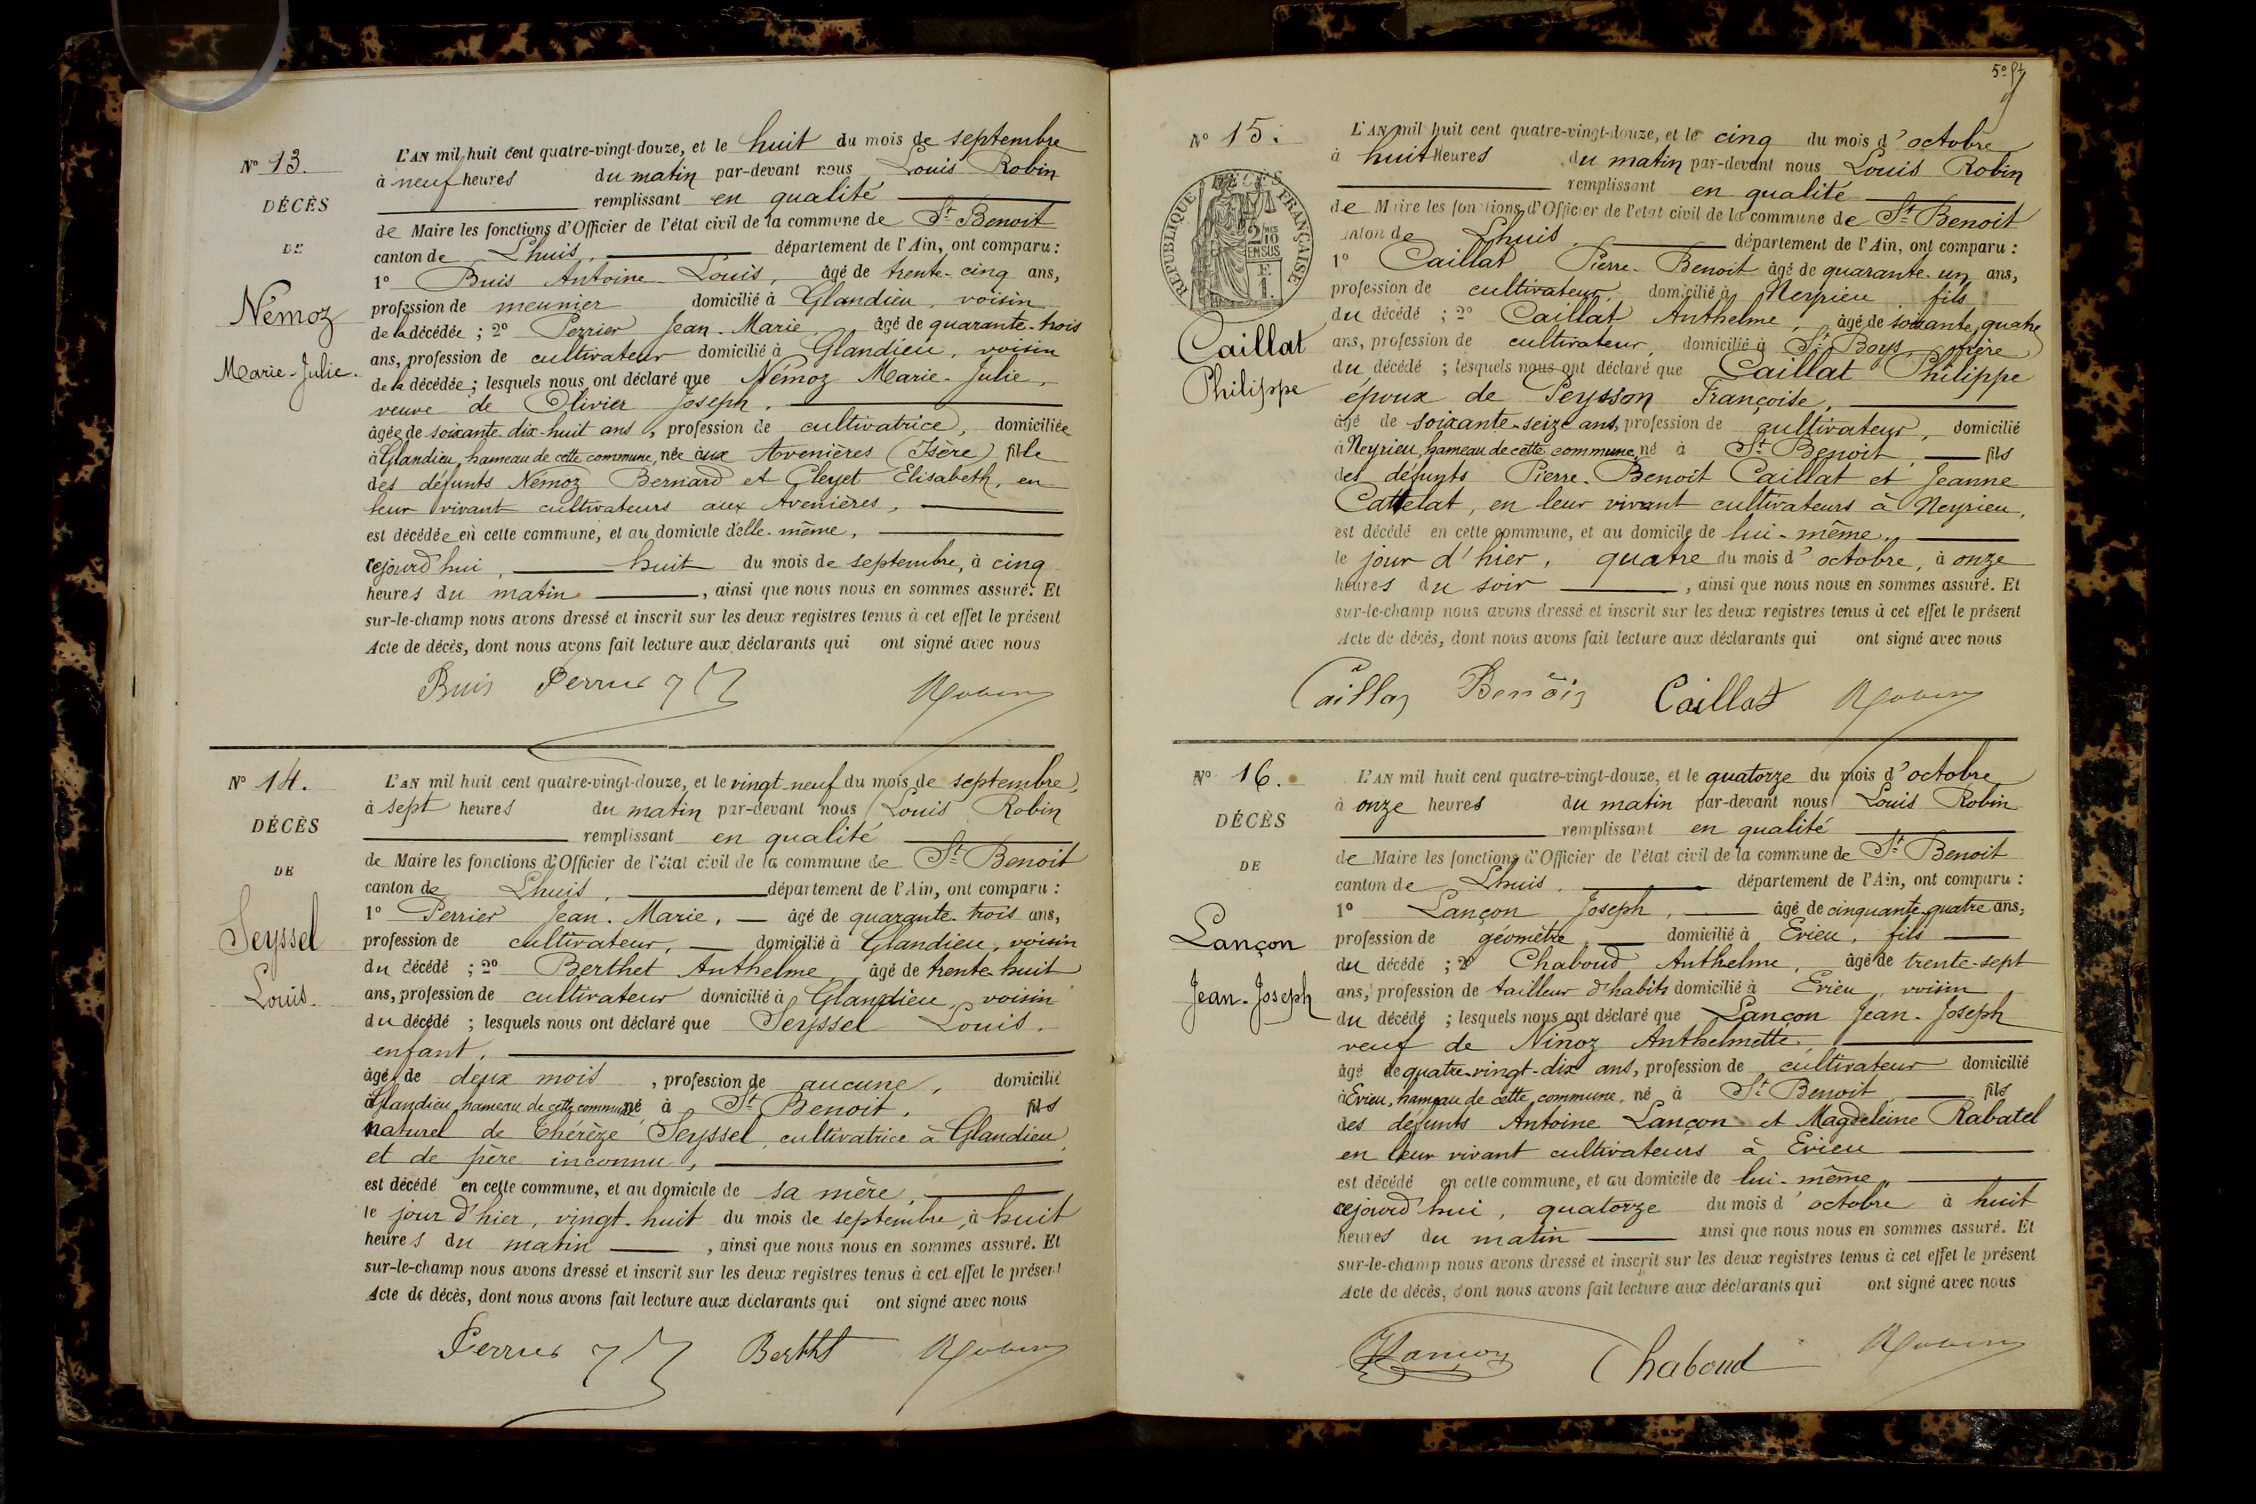 N° 13.
DÉCÈS
DE
Némoz
Marie-Julie.
L'AN mil huit cent quatre-vingt-douze, et le huit du mois de septembre
à neuf heures du matin par-devant nous Louis Robin
remplissant en qualité
de Maire les fonctions d'Officier de l'état civil de la commune de St Benoit
canton de Lhuis, département de l'Ain, ont comparu :
1° Buis Antoine Louis, âgé de trente-cinq ans,
profession de meunier domicilié à Glandieu, voisin
de la décédée ; 2° Perrier Jean-Marie, âgé de quarante-trois
ans, profession de cultivateur domicilié à Glandieu, voisin
de la décédée ; lesquels nous ont déclaré que Némoz Marie-Julie,
veuve de Olivier Joseph,
âgée de soixante-dix-huit ans, profession de cultivatrice, domiciliée
à Glandieu, hameau de cette commune, née aux Avenières (Isère) fille
des défunts Némoz Bernard et Cleyet Elisabeth, en
leur vivant cultivateurs aux Avenières,
est décédée en cette commune, et au domicile d'elle-même,
cejourd'hui, huit du mois de septembre, à cinq
heures du matin, ainsi que nous nous en sommes assuré. Et
sur-le-champ nous avons dressé et inscrit sur les deux registres tenus à cet effet le présent
Acte de décès, dont nous avons fait lecture aux déclarants qui ont signé avec nous
Buis Perrier Robin
N° 14.
DÉCÈS
DE
Seyssel
Louis.
L'AN mil huit cent quatre-vingt-douze, et le vingt-neuf du mois de septembre,
à sept heures du matin par-devant nous Louis Robin
remplissant en qualité
de Maire les fonctions d'Officier de l'état civil de la commune de St Benoit
canton de Lhuis, département de l'Ain, ont comparu :
1° Perrier Jean-Marie, âgé de quarante-trois ans,
profession de cultivateur, domicilié à Glandieu, voisin
du décédé ; 2° Berthet Anthelme, âgé de trente-huit
ans, profession de cultivateur domicilié à Glandieu, voisin
du décédé ; lesquels nous ont déclaré que Seyssel Louis,
enfant,
âgé de deux mois, profession de aucune, domicilié
à Glandieu, hameau de cette commune, né à St Benoit, fils
naturel de Thérèze Seyssel, cultivatrice à Glandieu
et de père inconnu,
est décédé en cette commune, et au domicile de sa mère,
le jour d'hier, vingt-huit du mois de septembre, à huit
heures du matin, ainsi que nous nous en sommes assuré. Et
sur-le-champ nous avons dressé et inscrit sur les deux registres tenus à cet effet le présent
Acte de décès, dont nous avons fait lecture aux déclarants qui ont signé avec nous
Perrier Berthet Robin
N° 15.
DÉCÈS
RÉPUBLIQUE FRANÇAISE
2/10 EN SUS
Caillat
Philippe
L'AN mil huit cent quatre-vingt-douze, et le cinq du mois d'octobre
à huit heures du matin par-devant nous Louis Robin
remplissant en qualité
de Maire les fonctions d'Officier de l'état civil de la commune de St Benoit
canton de Lhuis, département de l'Ain, ont comparu :
1° Caillat Pierre-Benoit âgé de quarante-un ans,
profession de cultivateur, domicilié à Neyrieu, fils
du décédé ; 2° Caillat Anthelme, âgé de soixante quatre
ans, profession de cultivateur, domicilié à St Boys, frère
du décédé ; lesquels nous ont déclaré que Caillat Philippe
époux de Peysson Françoise,
âgé de soixante-seize ans, profession de cultivateur, domicilié
à Neyrieu, hameau de cette commune, né à St Benoit, fils
des défunts Pierre-Benoit Caillat et Jeanne
Cattelat, en leur vivant cultivateurs à Neyrieu,
est décédé en cette commune, et au domicile de lui-même,
le jour d'hier, quatre du mois d'octobre, à onze
heures du soir, ainsi que nous nous en sommes assuré. Et
sur-le-champ nous avons dressé et inscrit sur les deux registres tenus à cet effet le présent
Acte de décès, dont nous avons fait lecture aux déclarants qui ont signé avec nous
Caillat Benoit Caillat Robin
N° 16.
DÉCÈS
DE
Lançon
Jean-Joseph
L'AN mil huit cent quatre-vingt-douze, et le quatorze du mois d'octobre
à onze heures du matin par-devant nous Louis Robin
remplissant en qualité
de Maire les fonctions d'Officier de l'état civil de la commune de St Benoit
canton de Lhuis, département de l'Ain, ont comparu :
1° Lançon Joseph, âgé de cinquante quatre ans,
profession de géomètre, domicilié à Evieu, fils
du décédé ; 2° Chaboud Anthelme, âgé de trente-sept
ans, profession de tailleur d'habits domicilié à Evieu, voisin
du décédé ; lesquels nous ont déclaré que Lançon Jean-Joseph
veuf de Ninoz Anthelmette,
âgé de quatre-vingt-dix ans, profession de cultivateur domicilié
à Evieu, hameau de cette commune, né à St Benoit, fils
des défunts Antoine Lançon et Magdeleine Rabatel
en leur vivant cultivateurs à Evieu
est décédé en cette commune, et au domicile de lui-même,
cejourd'hui, quatorze du mois d'octobre à huit
heures du matin ainsi que nous nous en sommes assuré. Et
sur-le-champ nous avons dressé et inscrit sur les deux registres tenus à cet effet le présent
Acte de décès, dont nous avons fait lecture aux déclarants qui ont signé avec nous
Lançon Chaboud Robin